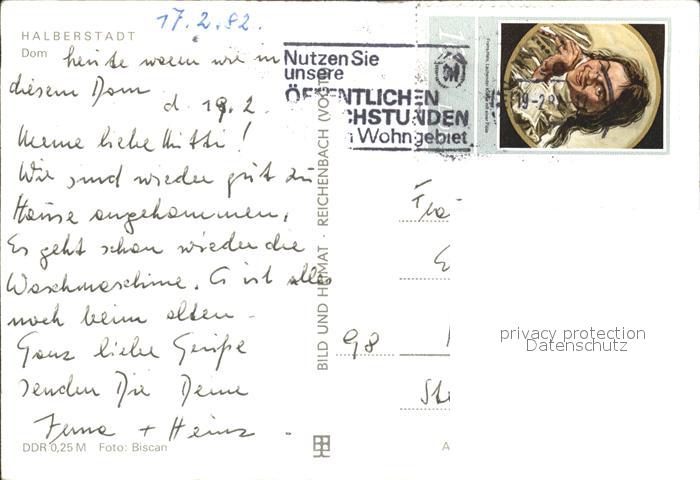 17.2.82.
HALBERSTADT
Dom
heute waren wir in
diesem Dom
d. 19.2.
Meine liebe Mutti!
Wir sind wieder gut zu
Hause angekommen.
Es geht schon wieder die
Waschmaschine. Es ist alles
noch beim alten.
Ganz liebe Grüße
senden Dir Deine
+ Heinz.
DDR 0,25 M Foto: Biscan
BILD UND HEIMAT · REICHENBACH (VOGTL
Nutzen Sie
unsere
ÖFFENTLICHEN
CHSTUNDEN
Wohngebiet
19-2.8
Fra
E
98
Ste
A
privacy protection
Datenschutz